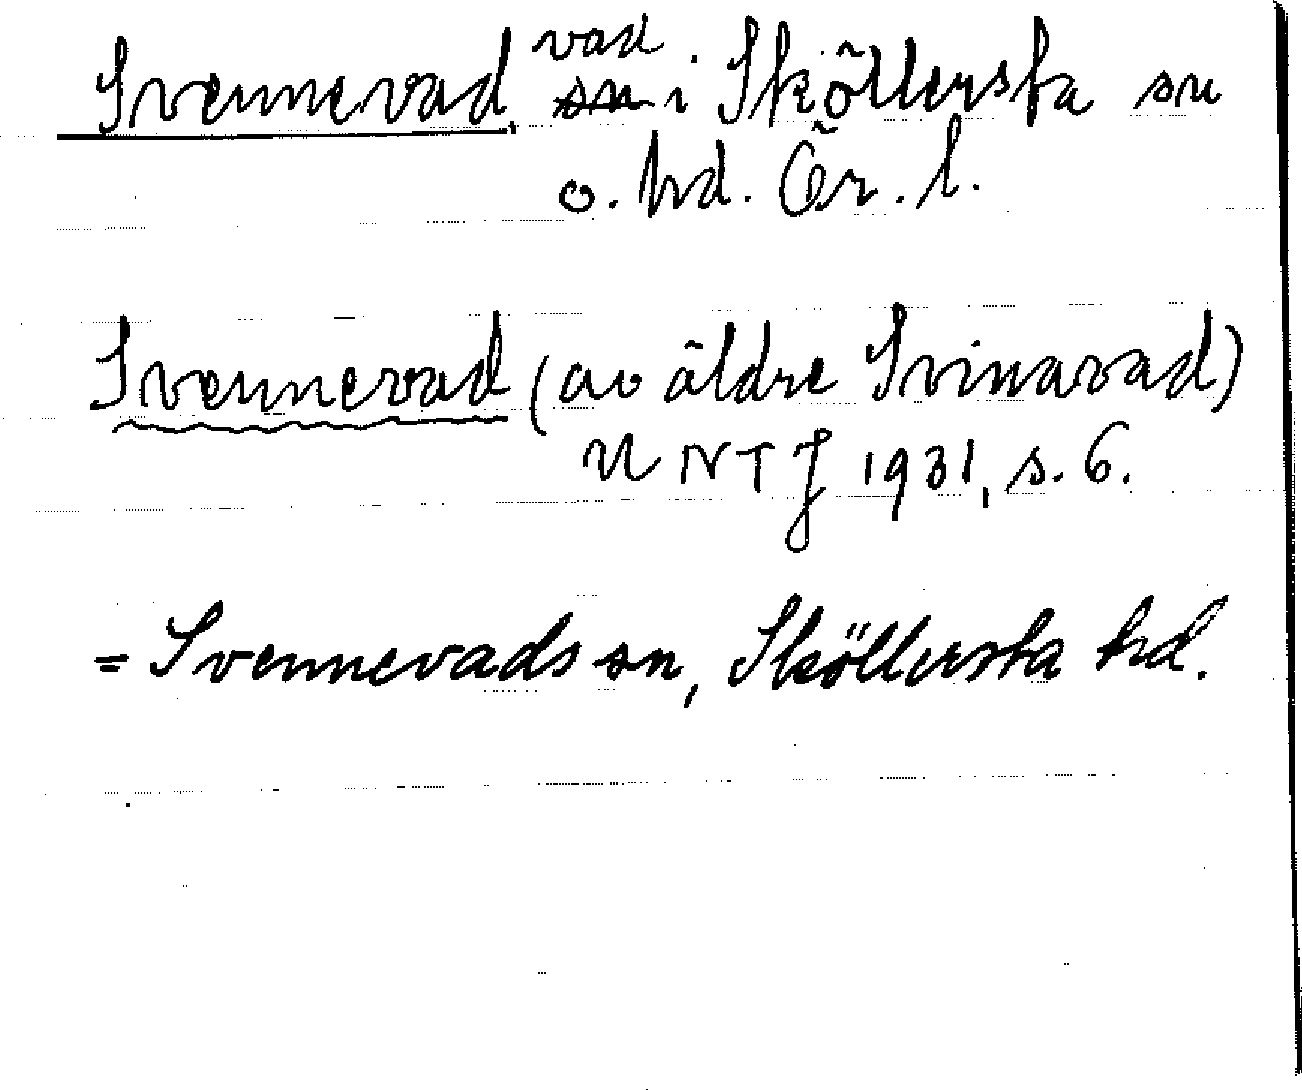 Svennevad, vad i Sköllersta sn
o. hd. Ör. l.
Svennevad (av äldre Svinavad)
NTJ 1931, s. 6.
= Svennevads sn, Sköllersta hd.